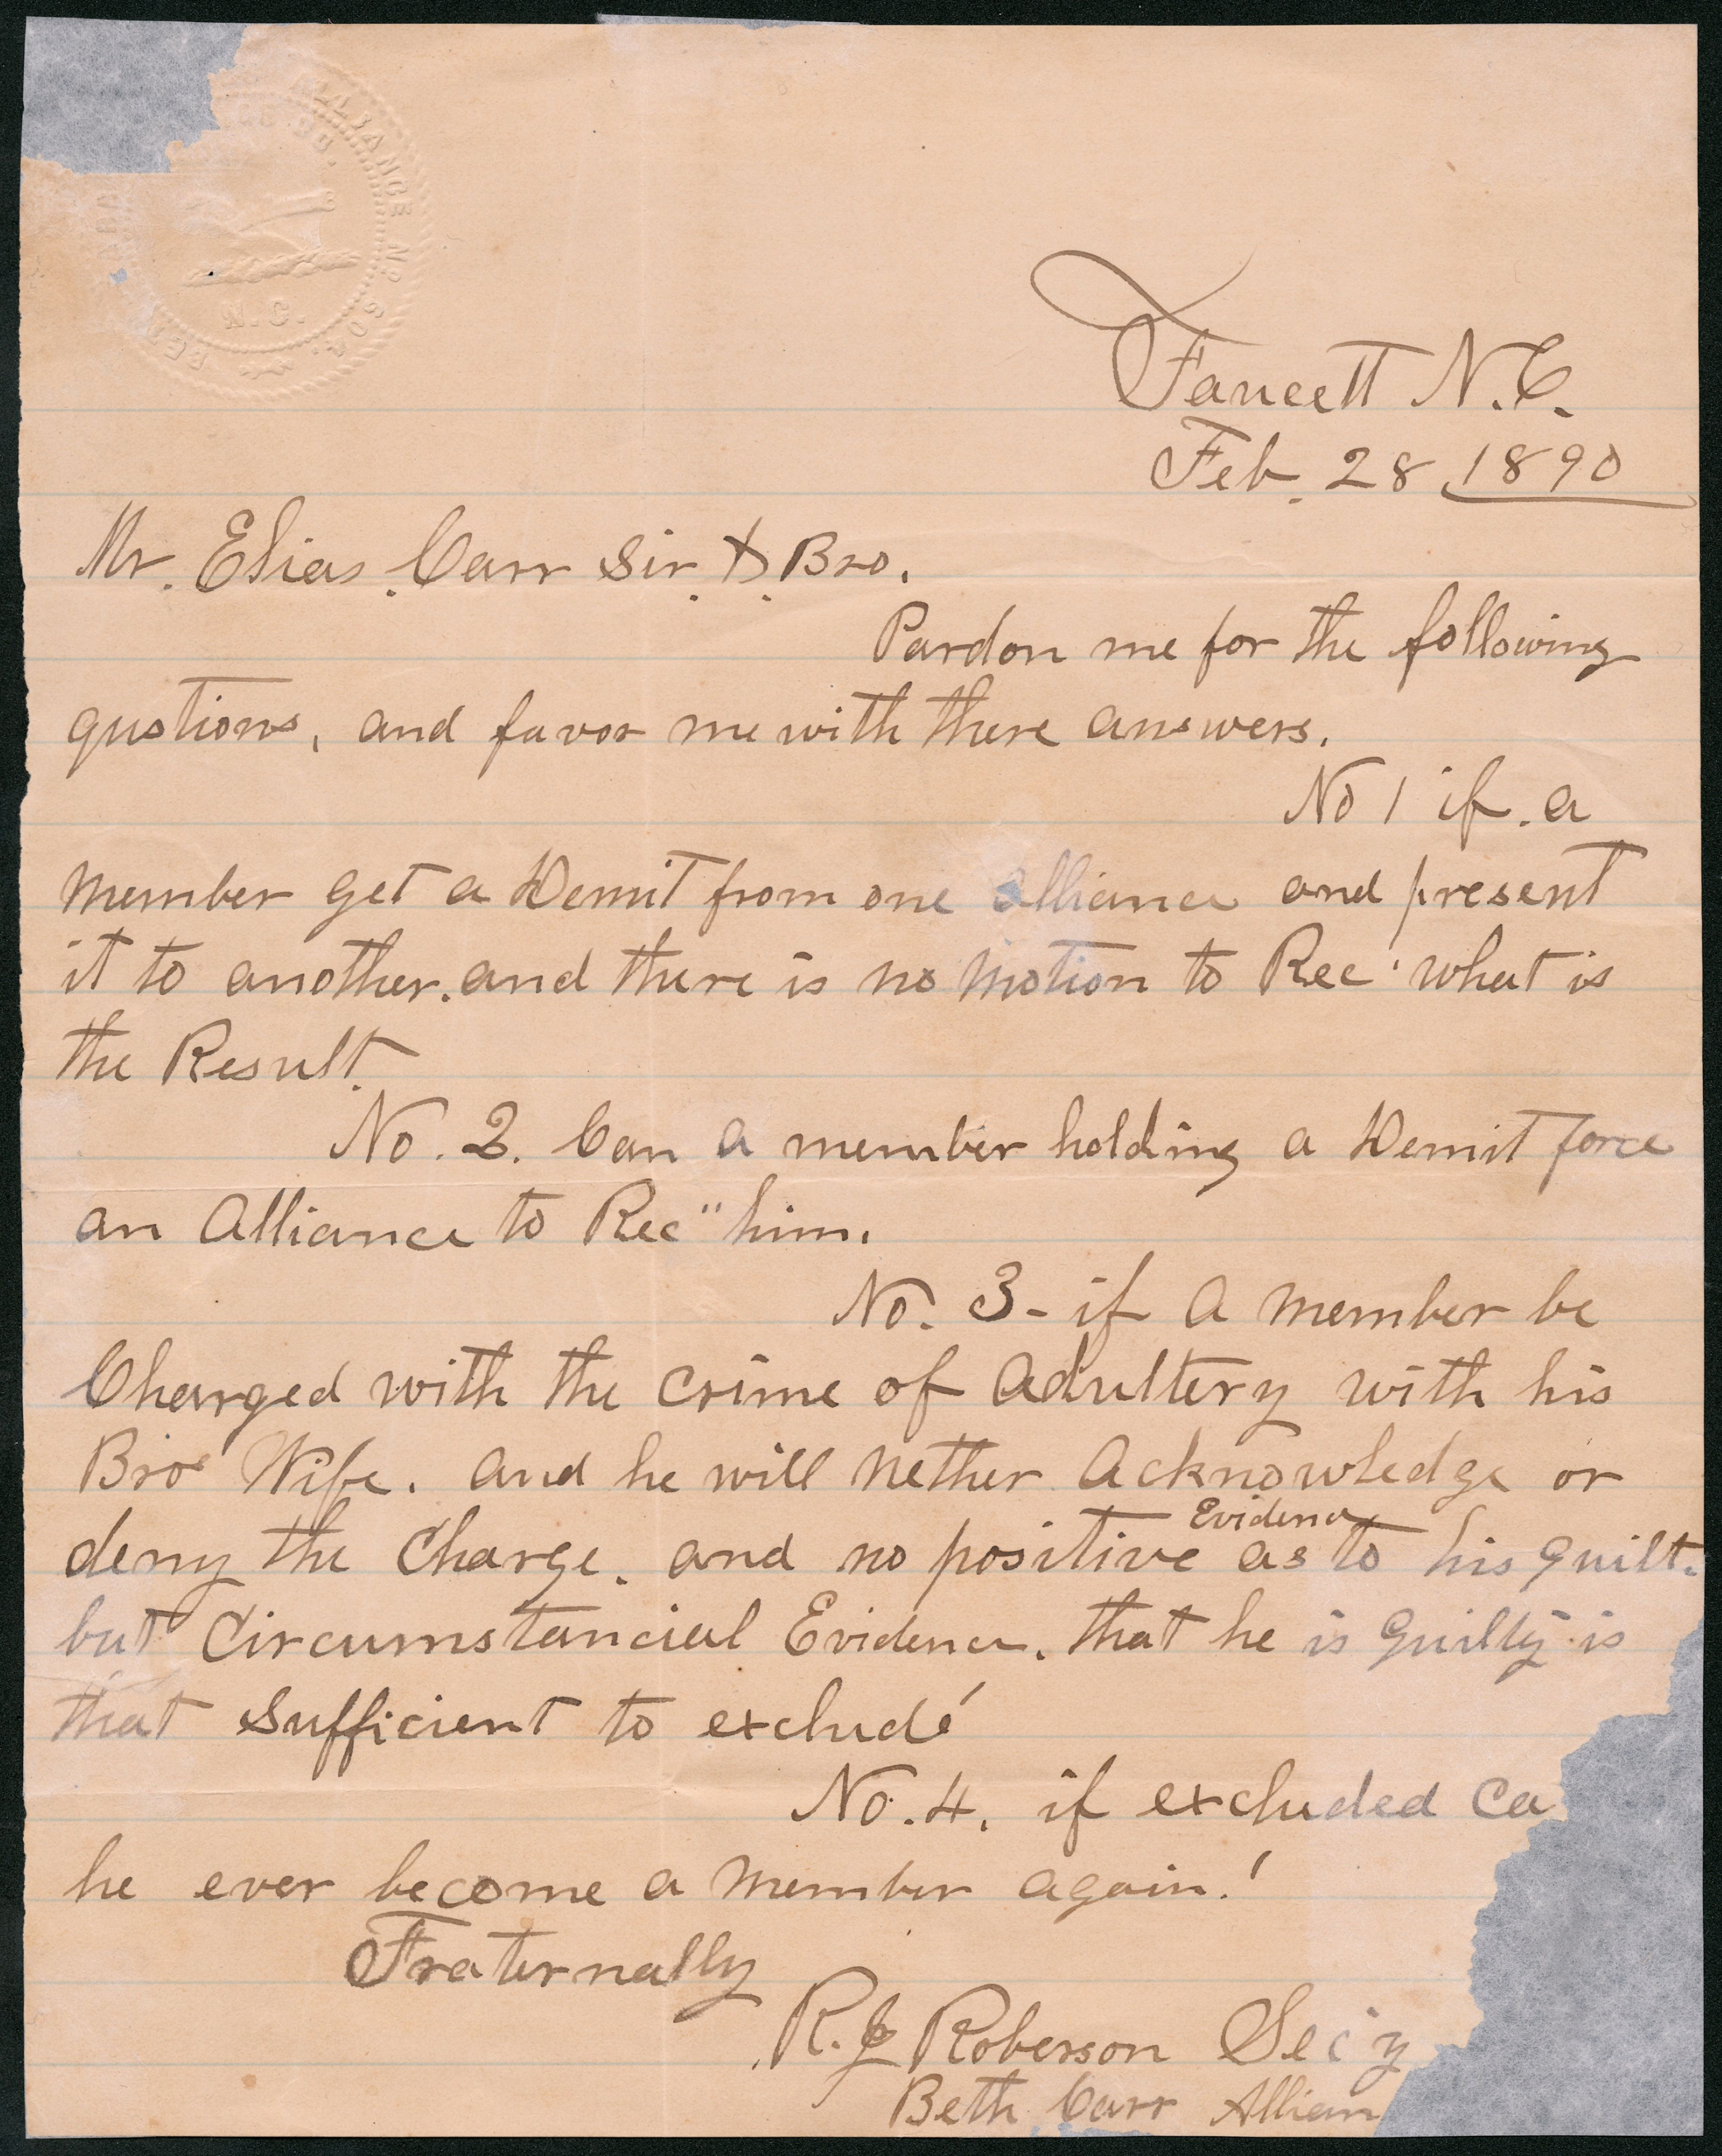 ALLIANCE No 609.
N.C.
BET
Faucett N.C.
Feb. 28, 1890
Mr. Elias Carr Sir & Bro.
Pardon me for the following
qustions, and favor me with there answers.
No 1 if a
member get a Demit from one alliance and present
it to another. and there is no motion to Rec' what is
the Result.
No. 2. Can a member holding a Demit force
an Alliance to Rec" him.
No. 3- if a member be
Charged with the crime of Adultery with his
Bros Wife. and he will nether Acknowledge or
deny the Charge. and no positive Evidence as to his guilt.
but Circumstancial Evidence. that he is guilty is
that sufficient to exclude
No. 4. if excluded Ca
he ever become a member again!
Fraternally
R. J Roberson Sec'y
Beth Carr Allian